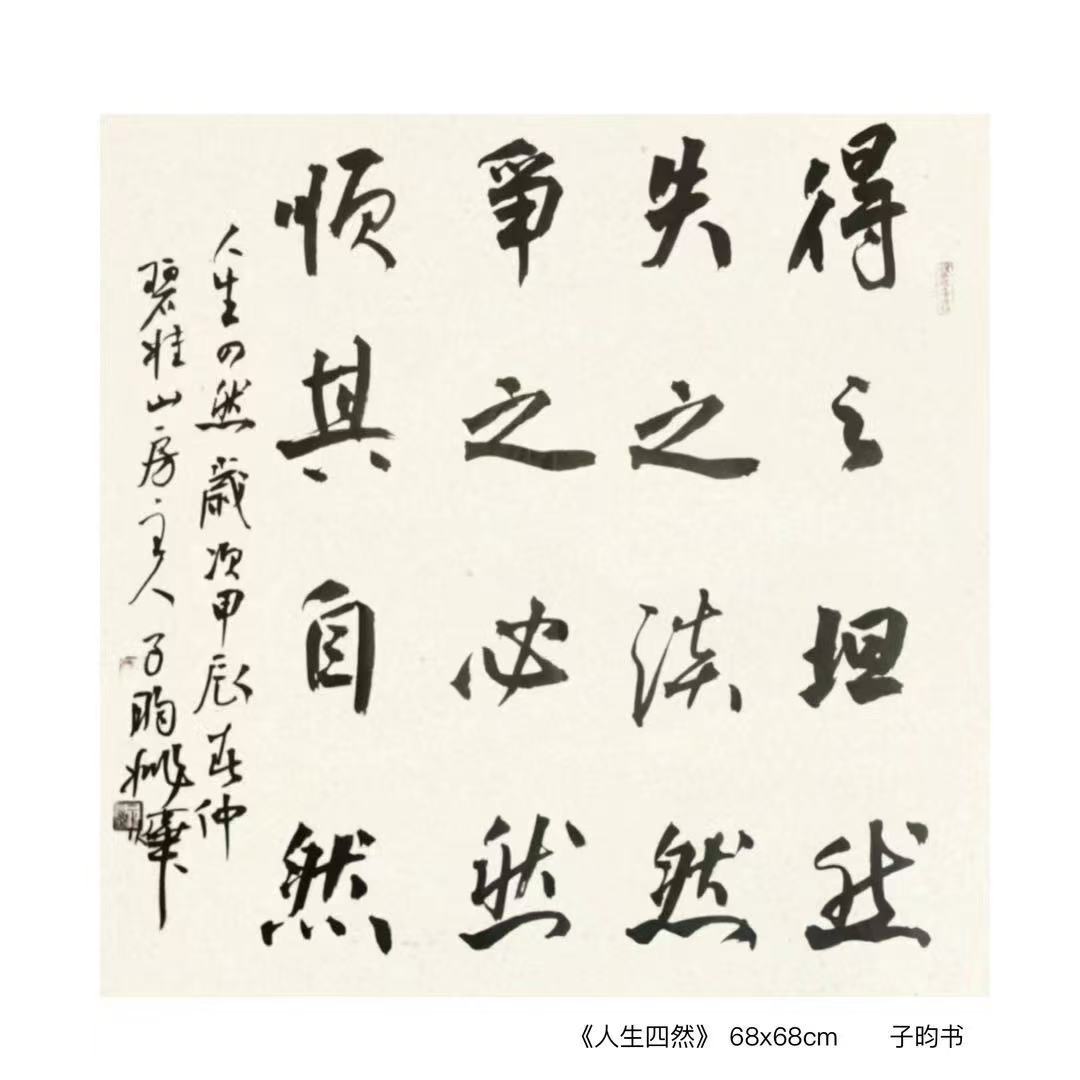 得之坦然
失之淡然
爭之必然
順其自然
人生四然 歲次甲辰春仲
碧桂山房主人子昀姚燁
《人生四然》 68x68cm 子昀书